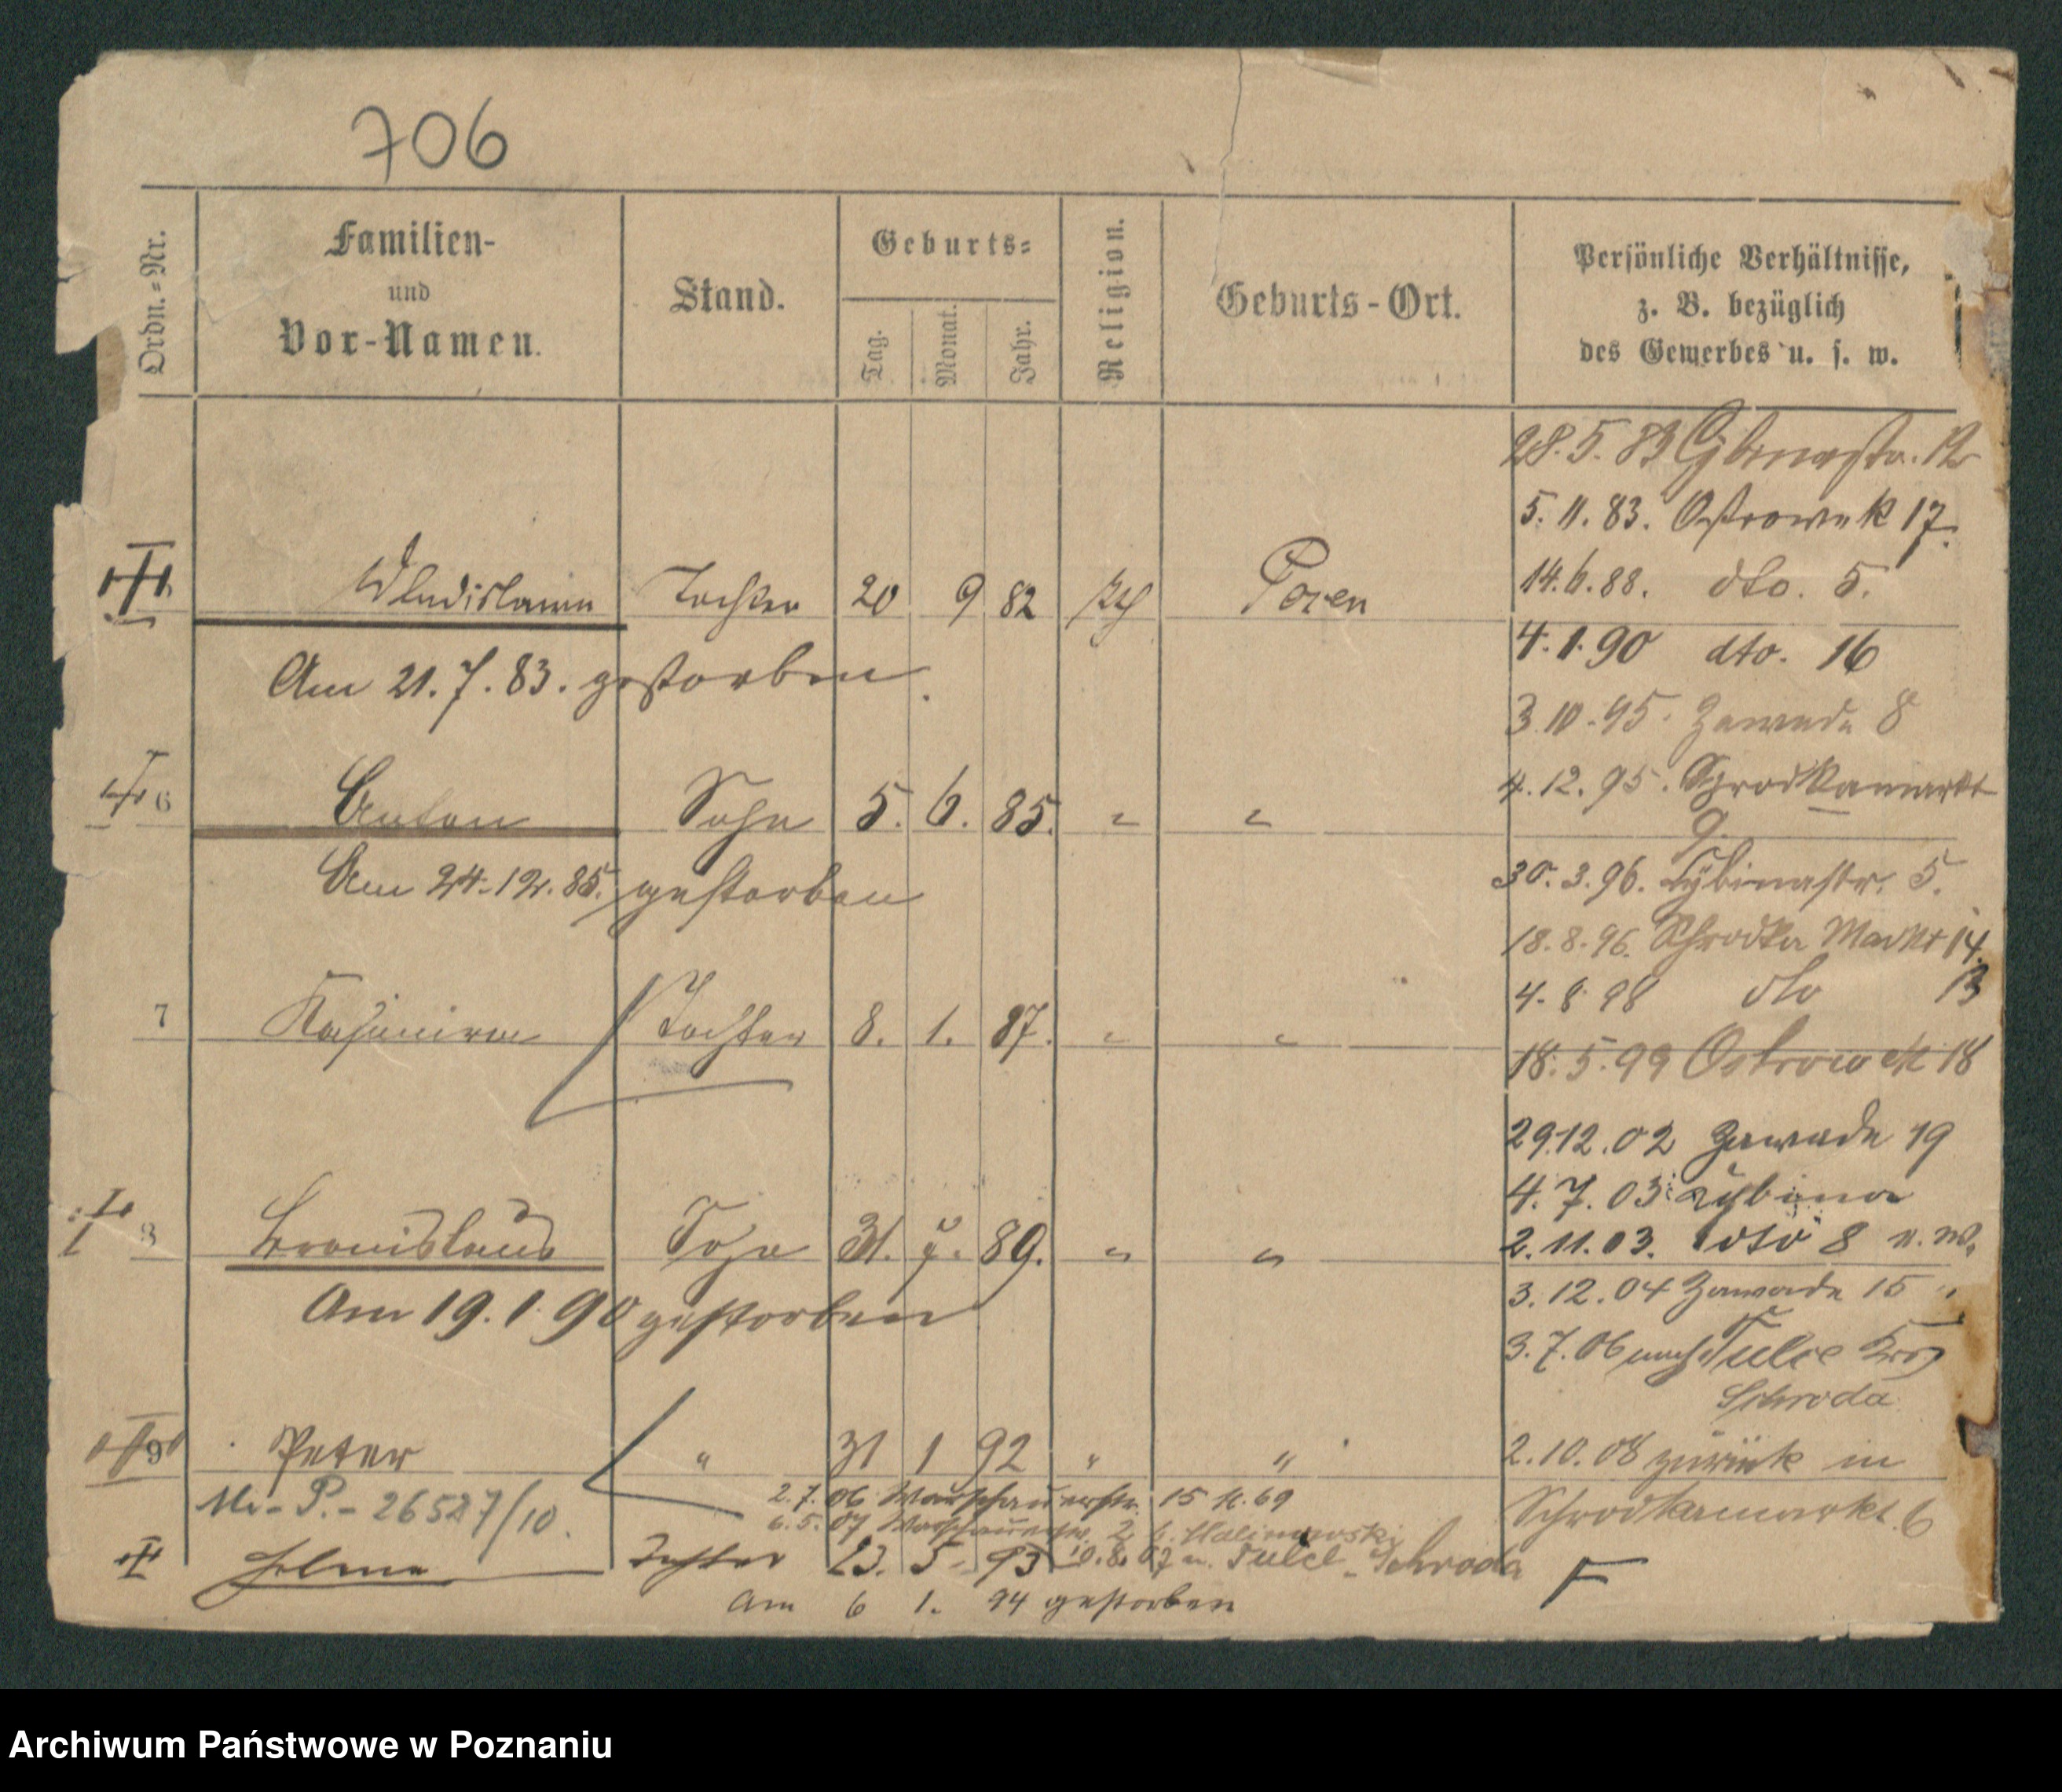 706
Ordn.-Nr.
Familien-
und
Vor-Namen.
Stand.
Geburts-
Tag.
Monat.
Jahr.
Religion.
Geburts-Ort.
Persönliche Verhältnisse,
z. B. bezüglich
des Gewerbes u. s. w.
28.5.83 Cybinastr. 12
5.11.83. Ostrowek 17.
Wladislawa Tochter 20 9 82 Posen
14.6.88. dto. 5.
4.1.90 dto. 16
Am 21.7.83. gestorben.
3.10.95. Zawade 8
4.12.95. Schrodkamarkt
9.
6 Anton Sohn 5. 6. 85. " "
Am 24.12.85. gestorben
30.3.96. Cybinastr. 5.
18.8.96. Schrodka Markt 14.
4.8 98 dto 13
7 Kasimira Tochter 8. 1. 87. " "
18.5.99 Ostrowek 18
29.12.02 Zawade 19
4.7.03. Cybina
8 Bronislaus Sohn 31. 7. 89. " "
2.11.03. dto 8 n. W.
Am 19.1.90 gestorben
3.12.04 Zawade 15 "
3.7.06 nach Tulce Krs
Schroda
9 Peter " 31 1 92 " "
2.10.08 zurück in
Schrodkamarkt 6
P. - 26527/10.
2.7.06 Warschauerstr. 15
6.5.07 Warschauerstr. 2 b.
Tochter 23. 5. 93 10.8.07 n. Tulce - Schroda
Am 6 1. 94 gestorben
F
Archiwum Państwowe w Poznaniu